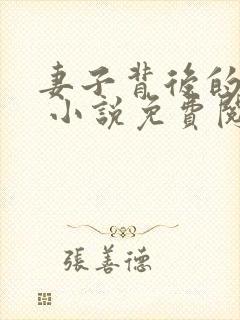 妻子背後的
小說免費閱
張善德